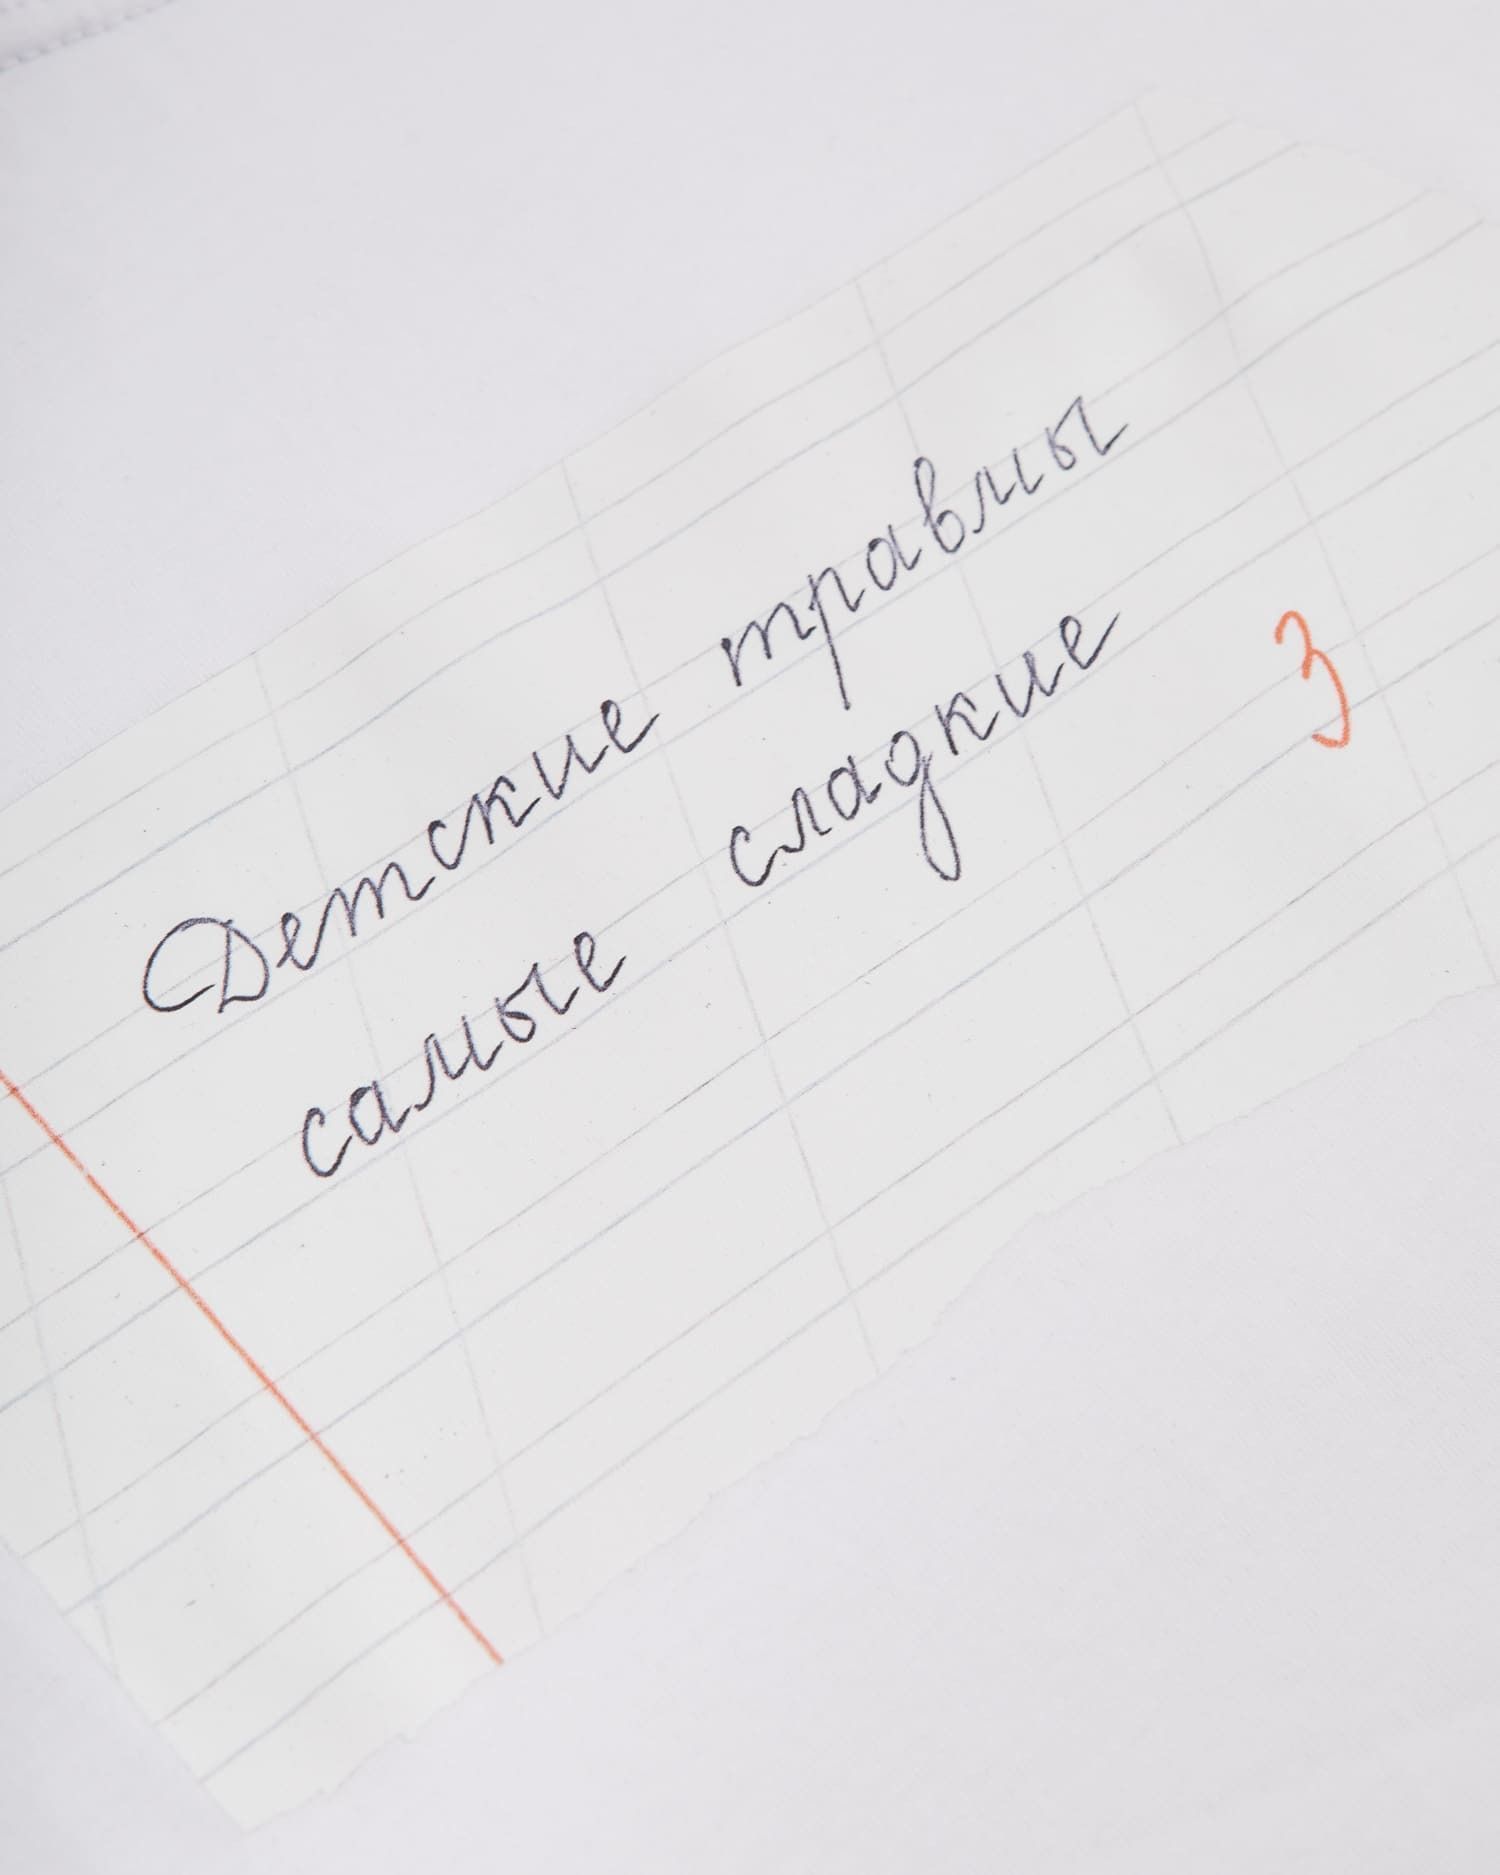 Детские травмы
самые сладкие
3